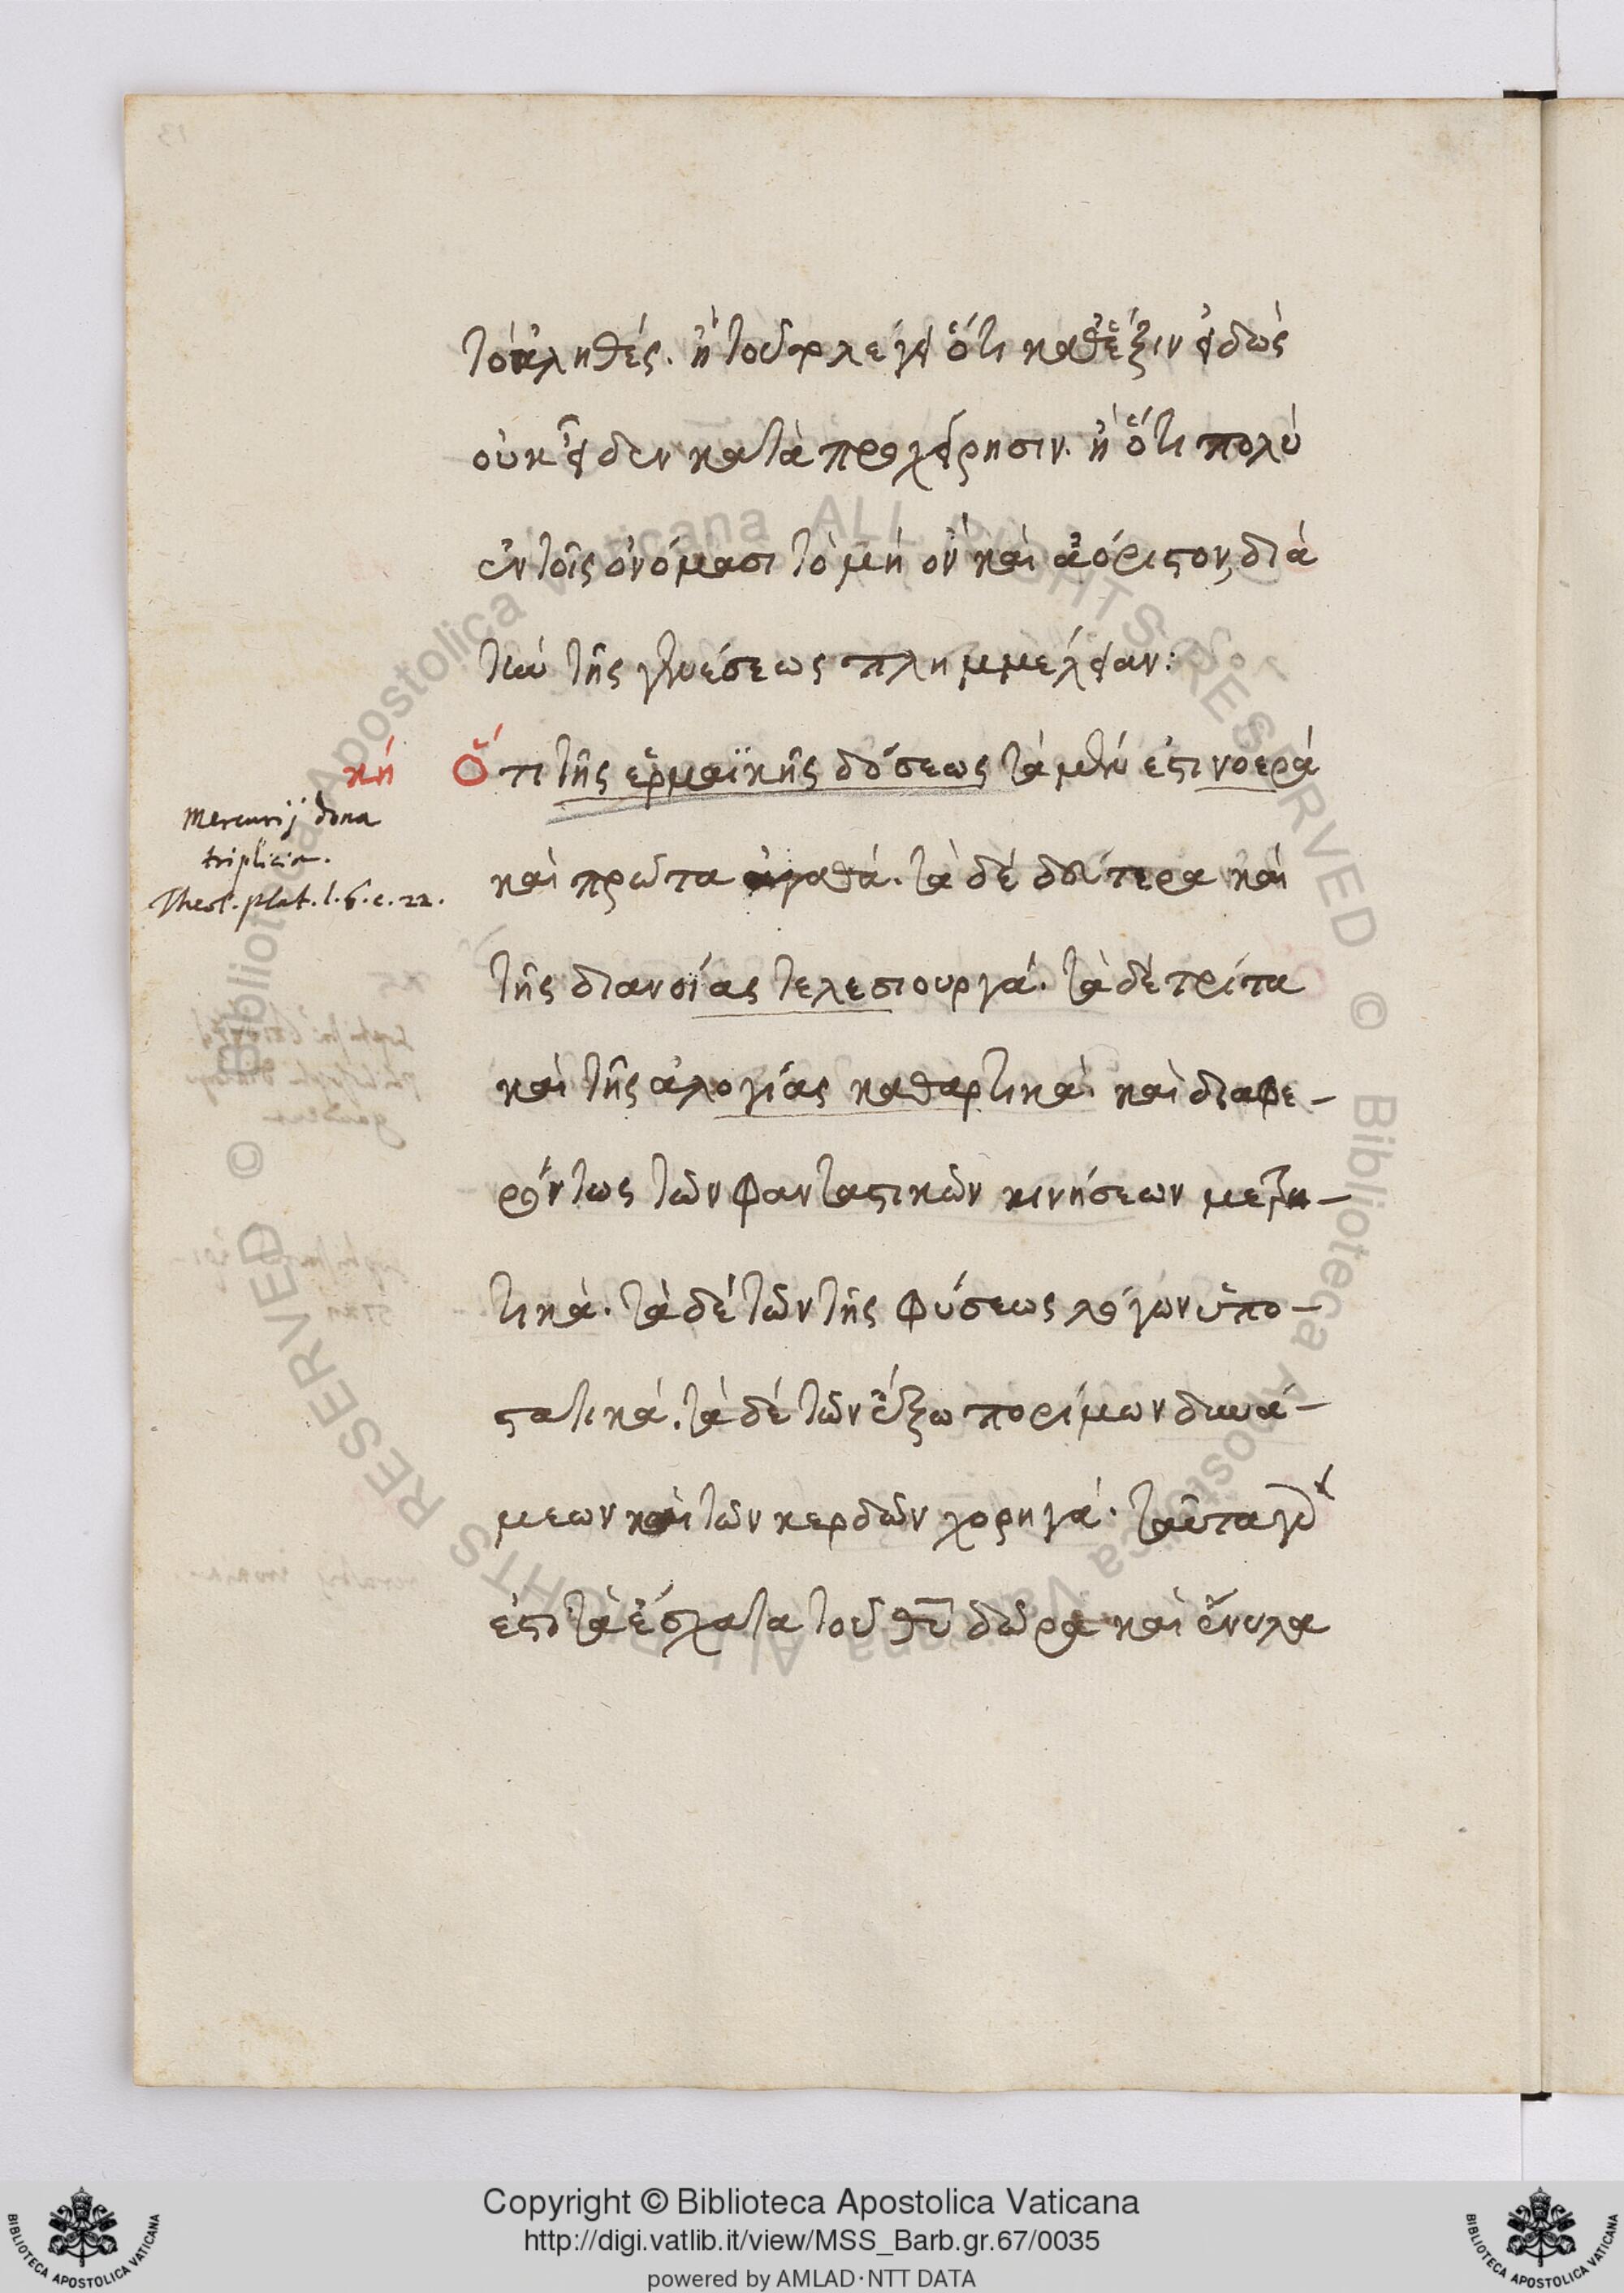 τὸ ἀληθές. ἢ τοῦτο λέγει ὅτι καθ' ἕξιν εἰδὼς
οὐκ εἶδεν κατὰ προχείρησιν. ἢ ὅτι πολὺ
ἐν τοῖς ὀνόμασι τὸ μὴ ὂν καὶ ἀόριστον, διὰ
τὴν τῆς γενέσεως πλημμέλειαν:
κη Ὅτι τῆς ἑρμαϊκῆς δόσεως τὰ μὲν ἐστι νοερὰ
Mercurij dona
triplicia.
Theol. plat. l. 6. c. 22.
καὶ πρῶτα ἀγαθά. τὰ δὲ δεύτερα καὶ
τῆς διανοίας τελεσιουργά. τὰ δὲ τρίτα
καὶ τῆς ἀλογίας καθαρτικά. καὶ διαφε-
ρόντως τῶν φανταστικῶν κινήσεων μετρη-
τικά. τὰ δὲ τῶν τῆς φύσεως λόγων ὑπο-
στατικά. τὰ δὲ τῶν ἔξω πορίμων δυνά-
μεων καὶ τῶν κερδῶν χορηγά. ταῦτα γὰρ
ἐστι τὰ ἔσχατα τοῦ θυ δῶρα καὶ ἔνυλα
Copyright © Biblioteca Apostolica Vaticana
http://digi.vatlib.it/view/MSS_Barb.gr.67/0035
powered by AMLAD·NTT DATA